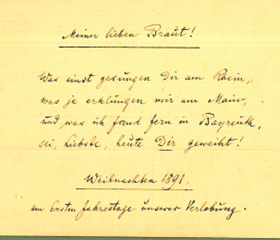 Meiner lieben Braut!
Was einst gesungen Dir am Rhein,
was je erklungen mir am Main,
und was ich fand fern in Bayreuth,
sei, Liebste, heute Dir geweiht!
Weihnachten 1891.
am ersten Jahrestage unserer Verlobung.